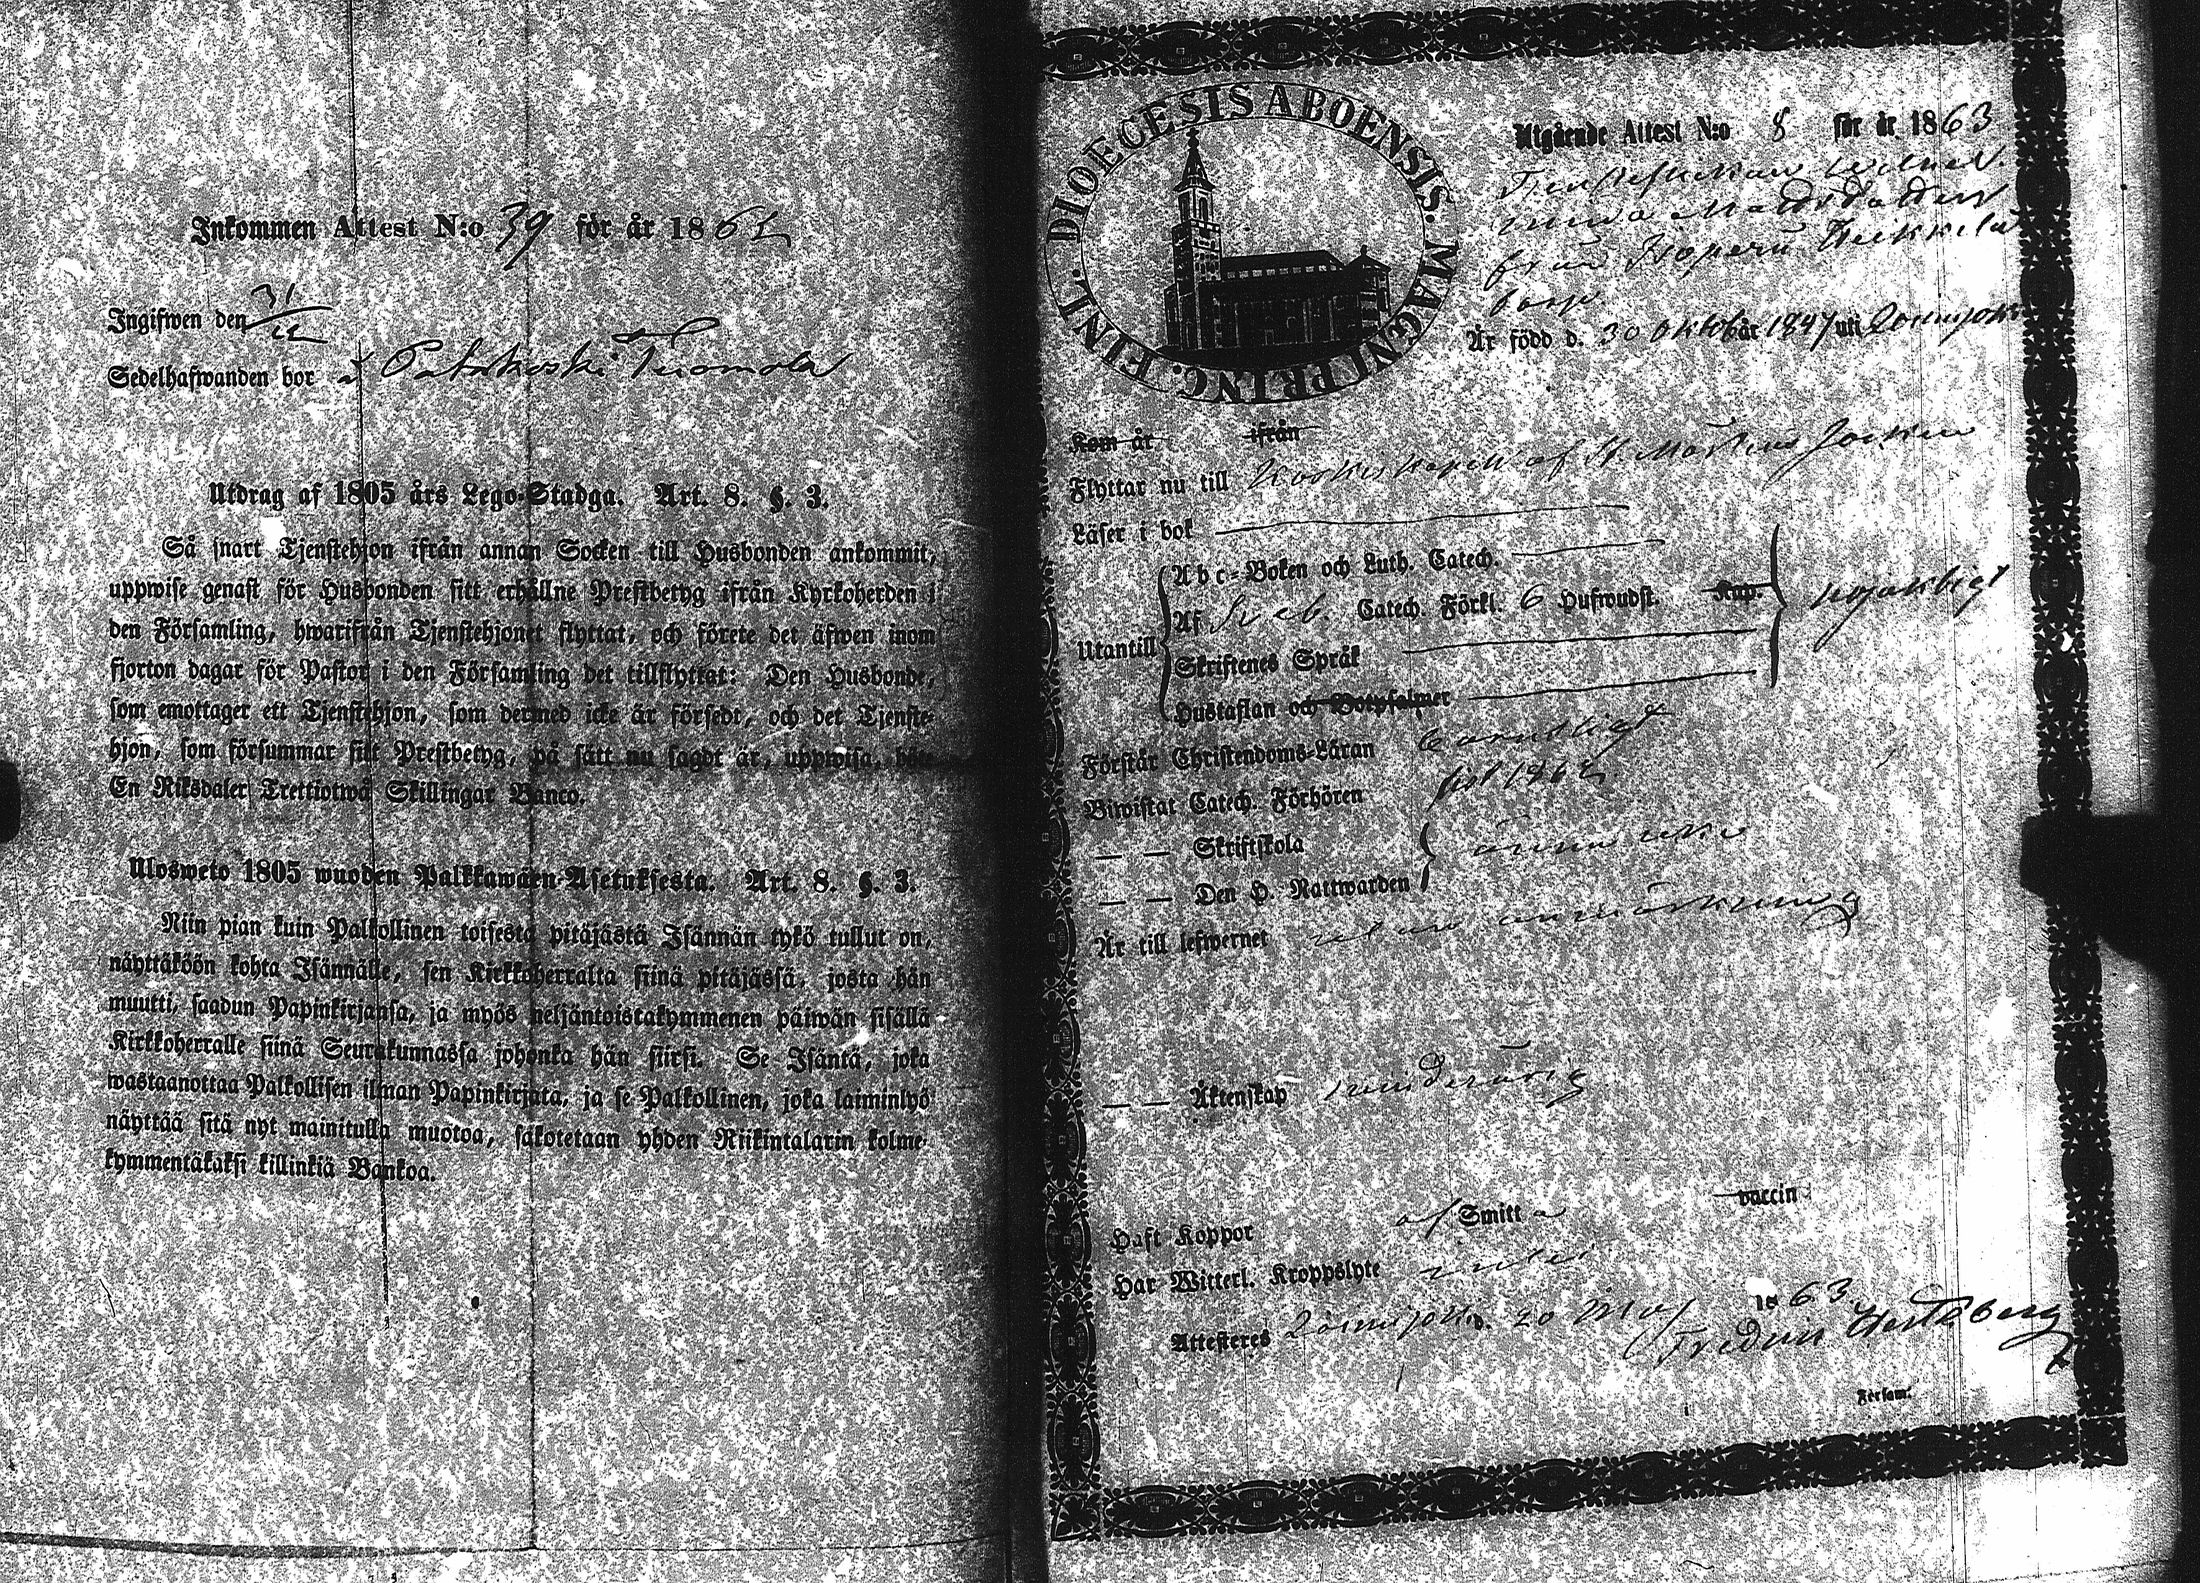 Inkommen Attest N:o 39 för år 186
Ingifwen den 31
Sedelhafwanden bor Tuomola
Utdrag af 1805 års Lego-Stadga. Art. 8. §. 3.
Så snart Tjenstehjon ifrån annan Socken till Husbonden ankommit,
uppwise genast för Husbonden sitt erhållne Prestbetyg ifrån Kyrkoherden i
den Församling, hwarifrån Tjenstehjonet flyttat, och förete det äfwen inom
fjorton dagar för Pastor i den Församling det tillflyttat: Den Husbonde,
som emottager ett Tjenstehjon, som dermed icke är försedt, och det Tjenste-
hjon, som försummar sitt Prestbetyg, på sätt nu sagdt är, uppwisa, böte
En Riksdaler Trettiotwå Skillingar Banco.
Ulosweto 1805 wuoden Palkkawäen-Asetuksesta. Art. 8. §. 3.
Niin pian kuin Palkollinen toisesta pitäjästä Isännän tykö tullut on,
näyttäköön kohta Isännälle, sen Kirkkoherralta siinä pitäjässä, josta hän
muutti, saadun Papinkirjansa, ja myös neljäntoistakymmenen päiwän sisällä
Kirkkoherralle siinä Seurakunnassa johonka hän siirsi. Se Isäntä, joka
wastaanottaa Palkollisen ilman Papinkirjata, ja se Palkollinen, joka laiminlyö
näyttää sitä nyt mainitulla muotoa, sakotetaan yhden Riikintalarin kolme-
kymmentäkaksi killinkiä Bankoa.
FINL. DIOECESIS ABOENSIS. MAGNI PRINC.
Utgående Attest N:o 8 för år 1863
Mattsdotter
från Isoperu Heikkilä
Är född d. 30 Oktob år 1847 uti Loimijoki
Kom år ifrån
Flyttar nu till Koskis kapell af St Mårtens Socken
Läser i bok
Utantill
Abc-Boken och Luth. Catech.
Af Sveb. Catech. Förkl. 6 Hufwudst. Kap. nöjaktigt
Skriftenes Språk
Hustaflan och Botpsalmer
Förstår Christendoms-Läran
Biwistat Catech. Förhören 1862.
— — Skriftskola
— — Den H. Nattwarden ännu icke
Är till lefwernet utan anmärkning
— — Äktenskap minderårig
Haft Koppor af Smitta vaccin
Har Witterl. Kroppslyte intet
Attesteres Loimijoki d. 20 Maj 1863
Fredrik
Församl.